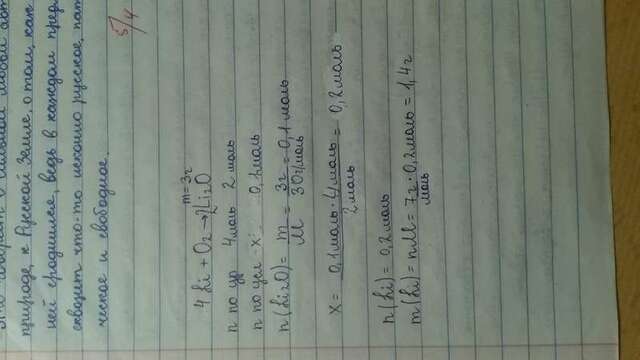 природе, к Русской Земле, о том, как
ней сроднился, ведь в каждом пред
сквозит что-то исконно русское, пат
ческое и свободное.
5/4
m=3г
4Li + O2 → 2Li2O
n по ур 4моль 2 моль
n по усл -x 0,1моль
n(Li2O) = m/M = 3г/30г/моль = 0,1 моль
x = 0,1моль·4моль/2моль = 0,2моль
n(Li) = 0,2 моль
m(Li) = nM = 7г/моль · 0,2моль = 1,4г